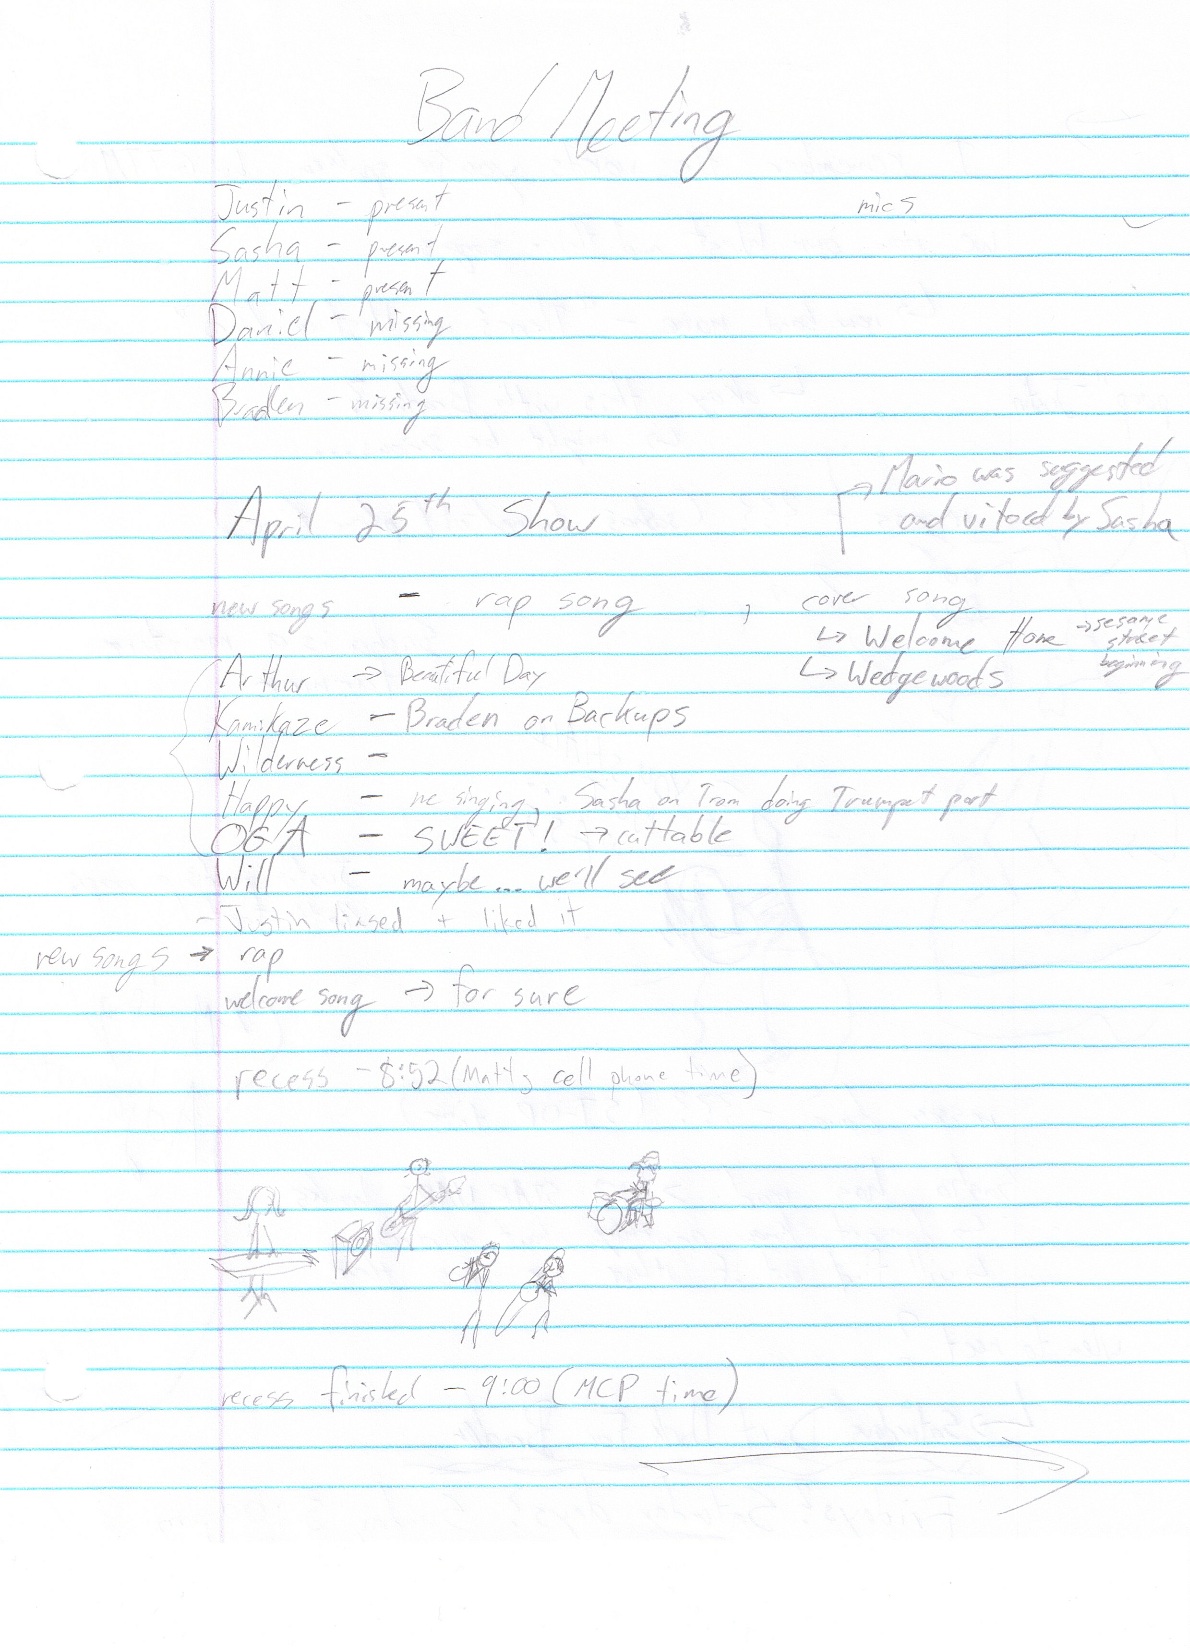 Band Meeting
Justin - present
mics
Sasha - present
Matt - present
Daniel - missing
Annie - missing
Braden - missing
→ Mario was suggested
and vitoed by Sasha
April 25th Show
new songs - rap song , cover song
↳ Welcome Home → sesame street beginning
↳ Wedgewoods
Arthur → Beautiful Day
Kamikaze - Braden on Backups
Wilderness -
Happy - me singing, Sasha on Trom doing Trumpet part
OGA - SWEET! → cuttable
Will - maybe... we'll see
- Justin linsed + liked it
new songs → rap
welcome song → for sure
recess - 8:52 (Matt's cell phone time)
recess finished - 9:00 (MCP time)